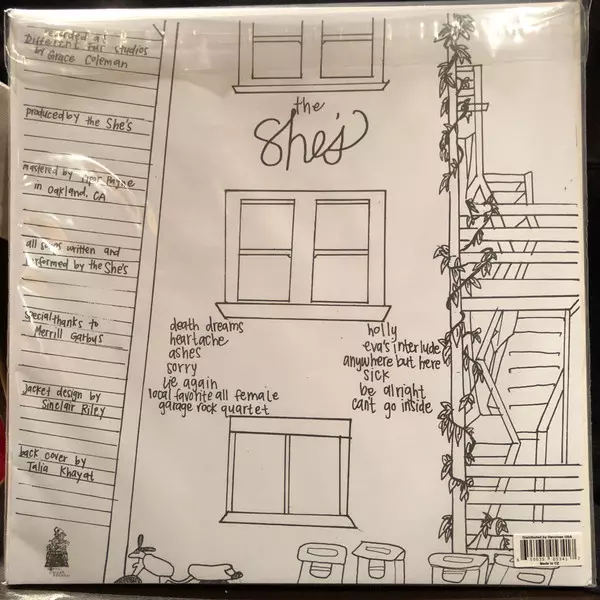 recorded at
Different Fur Studios
by Grace Coleman
produced by the She's
mastered by
Payne
in Oakland, CA
all songs written and
performed by the She's
special thanks to
Merrill Garbus
jacket design by
Sinclair Riley
back cover by
Talia Khayat
the
She's
death dreams
heartache
ashes
sorry
lie again
local favorite all female
garage rock quartet
holly
eva's interlude
anywhere but here
sick
be alright
cant go inside
Made in CZ